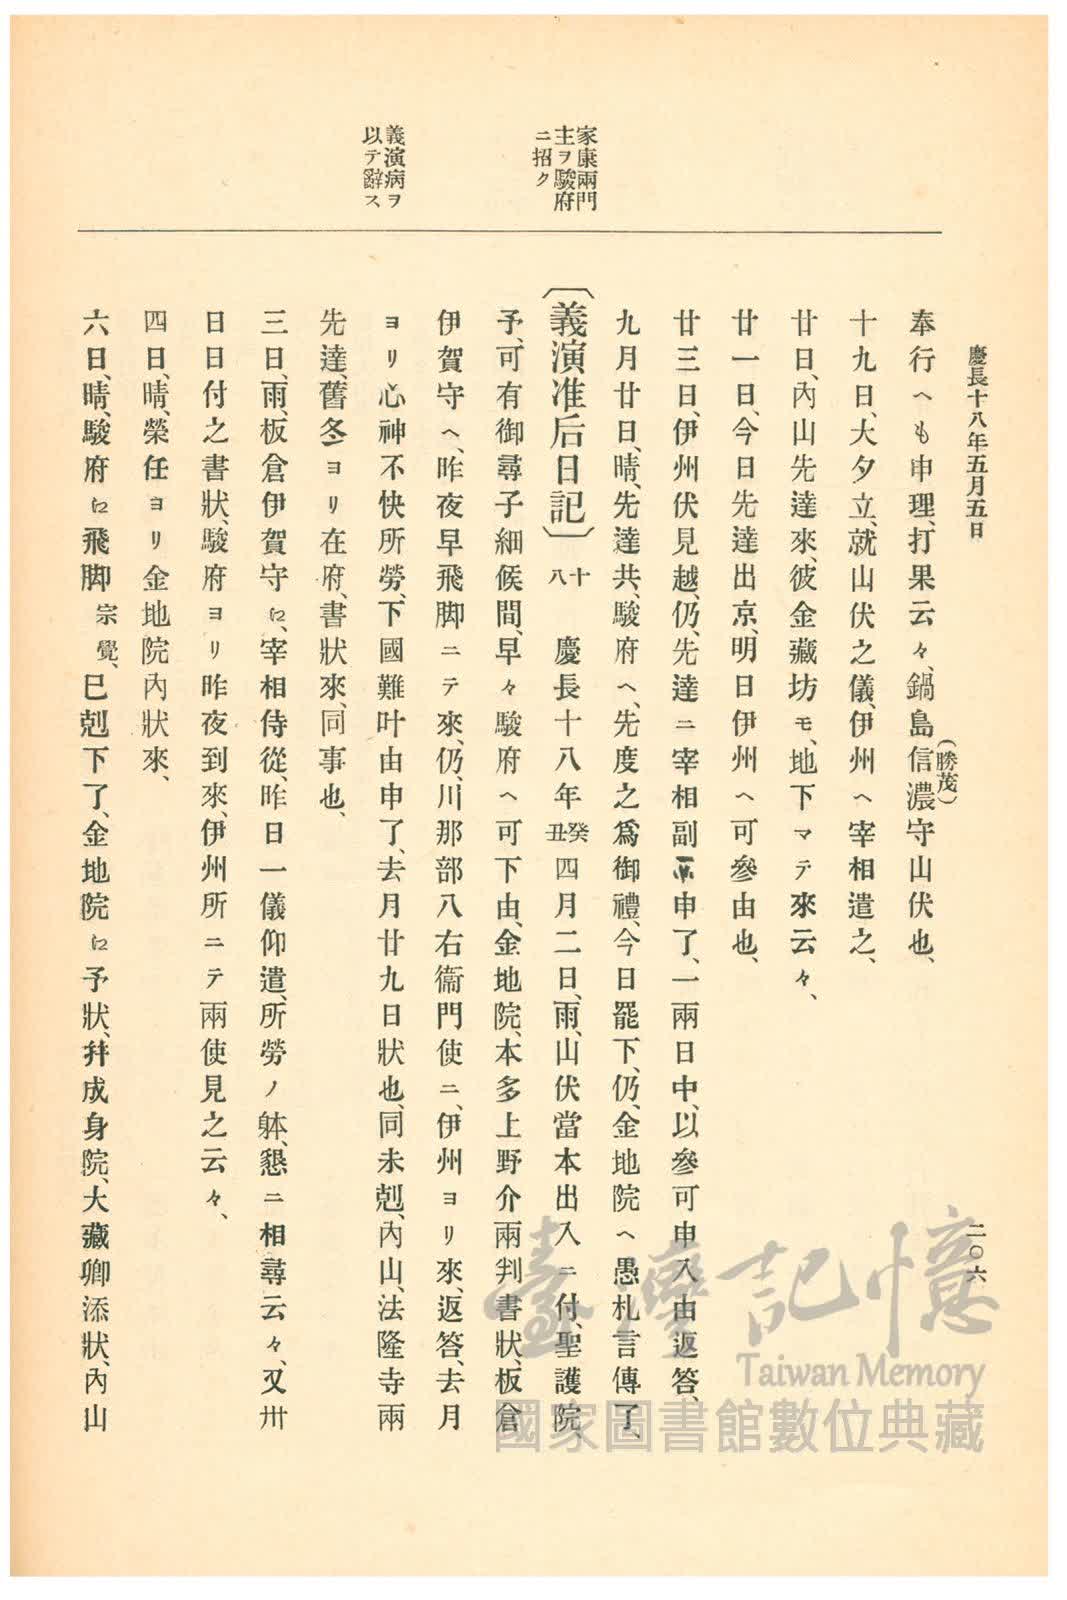 慶長十八年五月五日
二〇六
家康兩門
主ヲ駿府
ニ招ク
義演病ヲ
以テ辭ス
奉行ヘも申理、打果云々、鍋島信濃守山伏也、
(勝茂)
十九日、大夕立、就山伏之儀、伊州ヘ宰相遣之、
廿日、內山先達來、彼金藏坊モ、地下マテ來云々、
廿一日、今日先達出京、明日伊州ヘ可參由也、
廿三日、伊州伏見越、仍、先達ニ宰相副申了、一兩日中、以參可申入由返答、
九月廿日、晴、先達共、駿府ヘ、先度之爲御禮、今日罷下、仍、金地院ヘ愚札言傳了、
〔義演准后日記〕十八 慶長十八年癸丑四月二日、雨、山伏當本出入ニ付、聖護院、
予、可有御尋子細候間、早々駿府ヘ可下由、金地院、本多上野介兩判書狀、板倉
伊賀守ヘ、昨夜早飛脚ニテ來、仍、川那部八右衞門使ニ、伊州ヨリ來、返答、去月
ヨリ心神不快所勞、下國難叶由申了、去月廿九日狀也、同未剋、內山、法隆寺兩
先達、舊冬ヨリ在府、書狀來、同事也、
三日、雨、板倉伊賀守ヘ、宰相侍從、昨日一儀仰遣、所勞ノ躰、懇ニ相尋云々、又卅
日日付之書狀、駿府ヨリ昨夜到來、伊州所ニテ兩使見之云々、
四日、晴、榮任ヨリ金地院內狀來、
六日、晴、駿府ヘ飛脚宗覺、巳剋下了、金地院ヘ予狀、幷成身院、大藏卿添狀、內山
臺灣記憶
Taiwan Memory
國家圖書館數位典藏